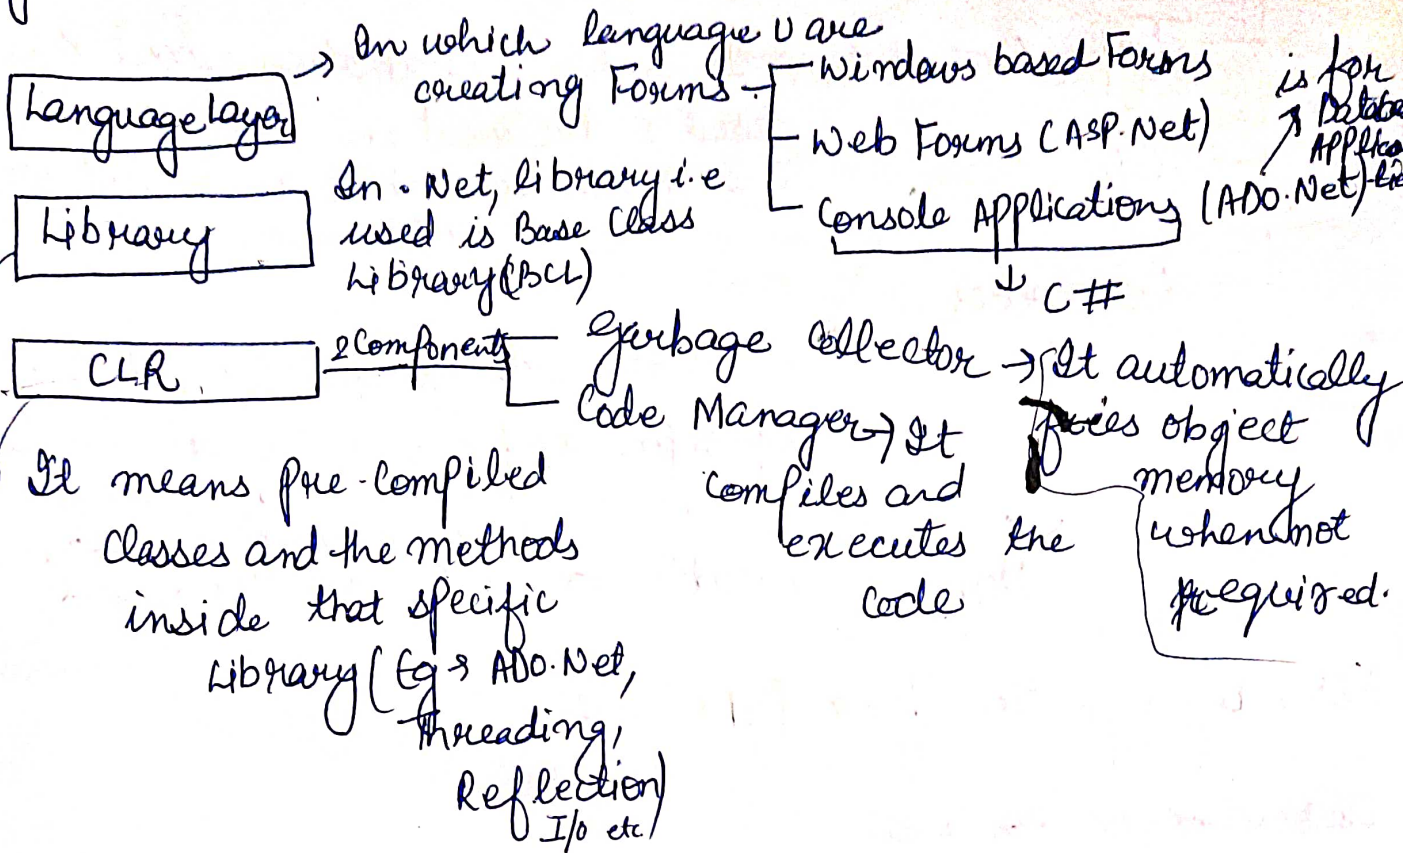 Language Layer
In which language U are
creating Forms
Windows based Forms
Web Forms (ASP.Net)
Console Applications (ADO.Net)
is for
C#
Library
In .Net, library i.e
used is Base Class
Library (BCL)
CLR
2 Components
Garbage Collector → It automatically
frees object
memory
when not
required.
Code Manager → It
compiles and
executes the
code
It means pre-compiled
classes and the methods
inside that specific
Library (Eg → ADO.Net,
Threading,
Reflection)
I/O etc